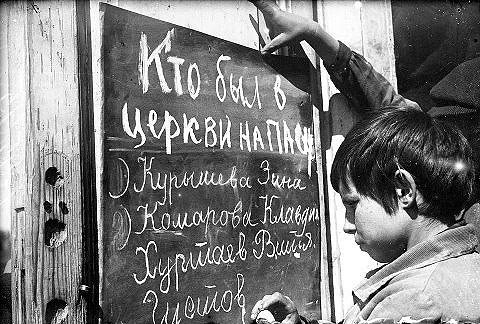 Кто был в
церкви на Пасху
1) Курышева Зина
2) Комарова Клавдия
Хуртаев Витья.
Густов